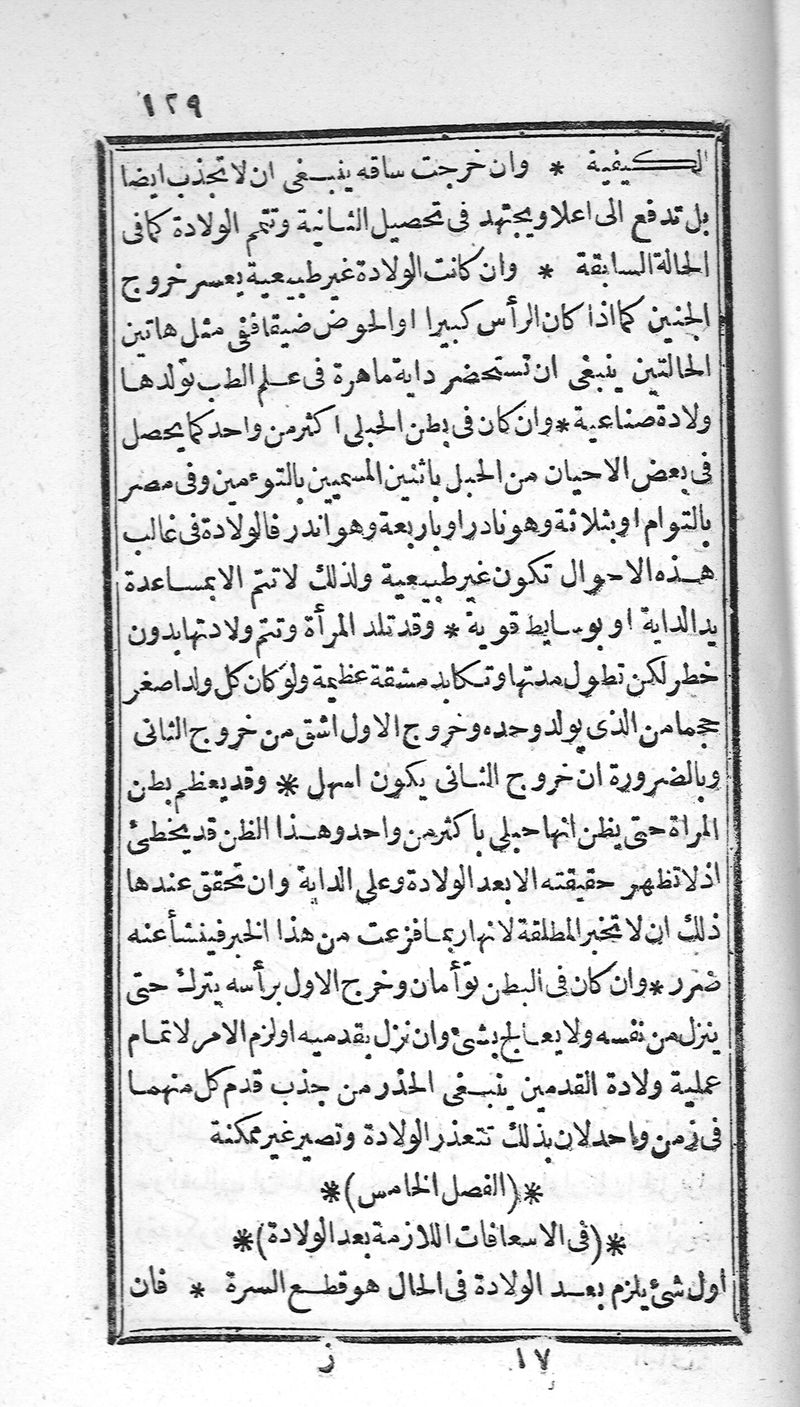 ١٢٩
الكيفية * وان خرجت ساقه ينبغى ان لا تجذب ايضا
بل تدفع الى اعلا ويجتهد فى تحصيل الثانية وتتم الولادة كما فى
الحالة السابقة * وان كانت الولادة غير طبيعية يعسر خروج
الجنين كما اذا كان الرأس كبيرا او الحوض ضيقا ففى مثل هاتين
الحالتين ينبغى ان تستحضر داية ماهرة فى علم الطب تولدها
ولادة صناعية * وان كان فى بطن الحبلى اكثر من واحد كما يحصل
فى بعض الاحيان من الحبل باثنين المسميين بالتوءمين وفى مصر
بالتوام او بثلاثة وهو نادر او باربعة وهو اندر فالولادة فى غالب
هذه الاحوال تكون غير طبيعية ولذلك لا تتم الا بمساعدة
يد الداية او بوسايط قوية * وقد تلد المرأة وتتم ولادتها بدون
خطر لكن تطول مدتها وتكابد مشقة عظيمة ولو كان كل ولد اصغر
حجما من الذى يولد وحده وخروج الاول اشق من خروج الثانى
وبالضرورة ان خروج الثانى يكون اسهل * وقد يعظم بطن
المراة حتى يظن انها حبلى باكثر من واحد وهذا الظن قد يخطئ
اذ لا تظهر حقيقته الا بعد الولادة وعلى الداية وان تحقق عندها
ذلك ان لا تخبر المطلقة لانها ربما فزعت من هذا الخبر فينشأ عنه
ضرر * وان كان فى البطن توأمان وخرج الاول برأسه يترك حتى
ينزل من نفسه ولا يعالج بشئ وان نزل بقدميه او لزم الامر لاتمام
عملية ولادة القدمين ينبغى الحذر من جذب قدم كل منهما
فى زمن واحد لان بذلك تتعذر الولادة وتصير غير ممكنة
*(الفصل الخامس)*
*(فى الاسعافات اللازمة بعد الولادة)*
اول شئ يلزم بعد الولادة فى الحال هو قطع السرة * فان
١٧ ز